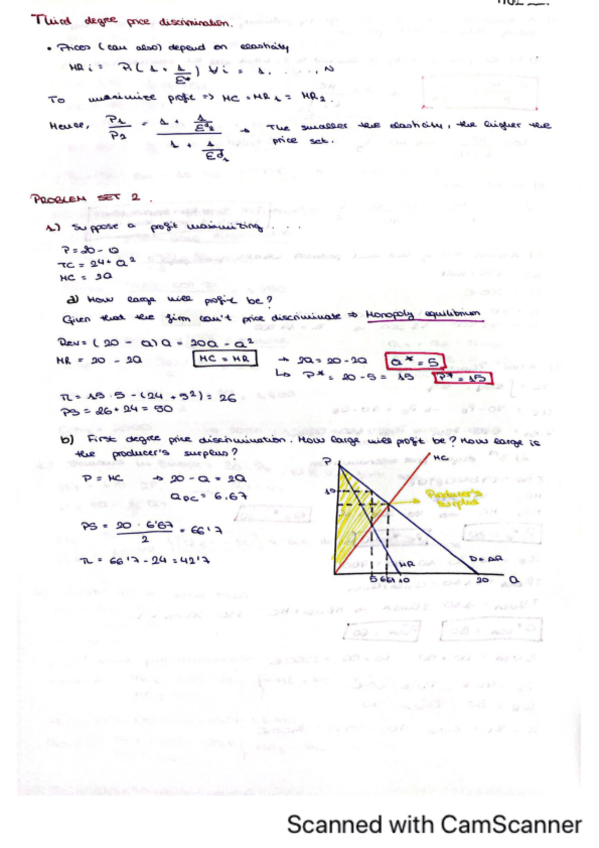 Third degree price discrimination.
• Prices (can also) depend on elasticity
MRi = Pi (1 + 1/Ed) ∀i = 1, ..., N
To maximize profit => MC = MR1 = MR2.
Hence, P1/P2 = (1 + 1/Ed2)/(1 + 1/Ed1) → The smaller the elasticity, the higher the
price set.
PROBLEM SET 2.
1.) Suppose a profit maximizing...
P = 20 - Q
TC = 24 + Q²
MC = 2Q
a) How large will profit be?
Given that the firm can't price discriminate => Monopoly equilibrium
Rev = (20 - Q)Q = 20Q - Q²
MR = 20 - 2Q MC = MR → 2Q = 20 - 2Q Q* = 5
↳ P* = 20 - 5 = 15 P* = 15
π = 15 · 5 - (24 + 5²) = 26
PS = 26 + 24 = 50
b) First degree price discrimination. How large will profit be? How large is
the producer's surplus?
P = MC → 20 - Q = 2Q
QPC = 6.67
PS = 20 · 6'67 / 2 = 66'7
π = 66'7 - 24 = 42'7
P
MC
15
Producer's
surplus
MR
D=AR
5 10 20 Q
Scanned with CamScanner